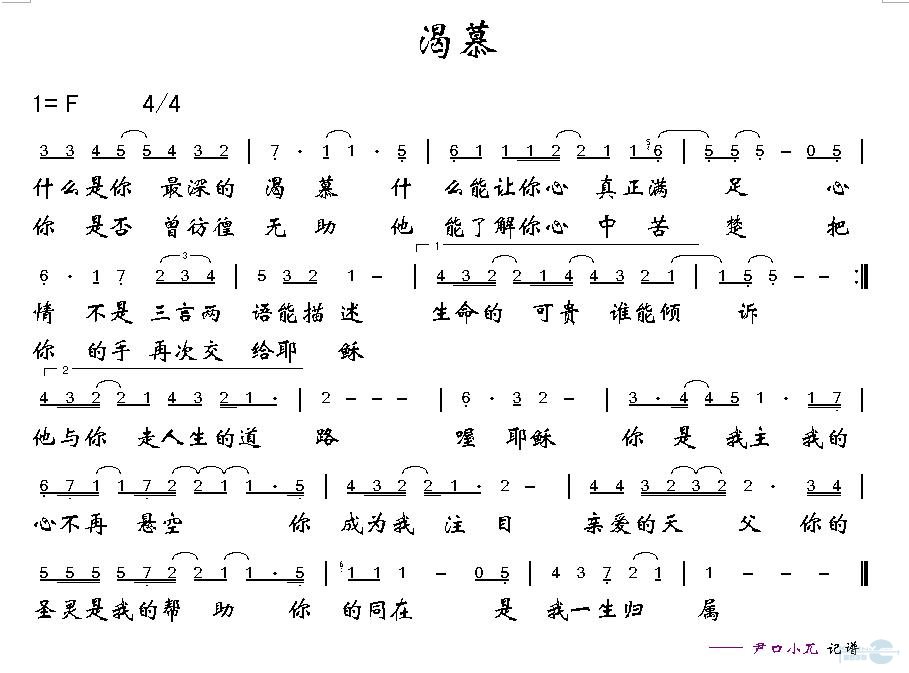 渴慕
1= F 4/4
3 3 4 5 5 4 3 2 | 7 · 1 1 · 5 | 6 1 1 1 2 2 1 1 6 | 5 5 5 – 0 5 |
什么是你 最深的 渴 慕 什 么能让你心 真正满 足 心
你 是否 曾彷徨 无 助 他 能了解你心 中 苦 楚 把
6 · 1 7 2 3 4 | 5 3 2 1 – | 4 3 2 2 1 4 4 3 2 1 | 1 5 5 – – :||
情 不是 三言两 语能描 述 生命的 可贵 谁能倾 诉
你 的手 再次交 给耶 稣
4 3 2 2 1 4 3 2 1 · | 2 – – – | 6 · 3 2 – | 3 · 4 4 5 1 · 1 7 |
他与你 走人生的道 路 喔 耶稣 你 是 我主 我的
6 7 1 1 7 2 2 1 1 · 5 | 4 3 2 2 1 · 2 – | 4 4 3 2 3 2 2 · 3 4 |
心不再 悬空 你 成为我 注 目 亲爱的天 父 你的
5 5 5 5 7 2 2 1 1 · 5 | 1 1 1 – 0 5 | 4 3 7 2 1 | 1 – – – ||
圣灵是我的帮 助 你 的同在 是 我一生归 属
—— 尹口小兀 记谱